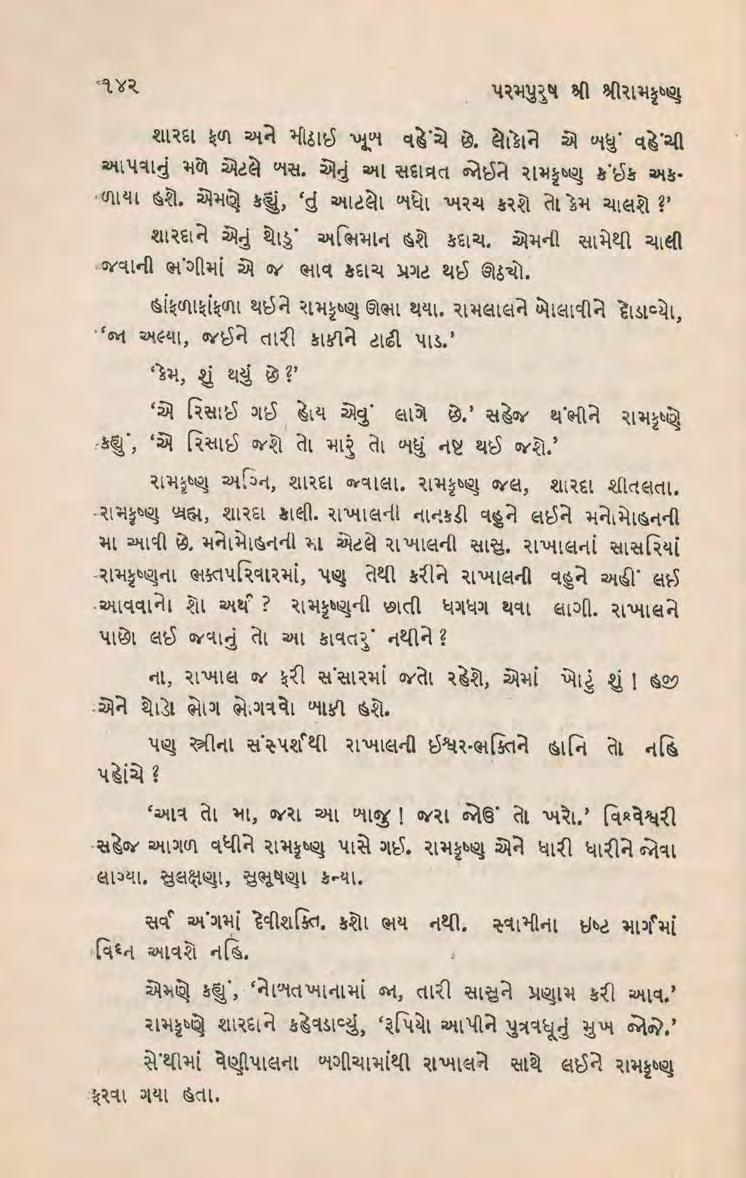 ૧૪૨ પરમપુરુષ શ્રી શ્રીરામકૃષ્ણ
શારદા ફળ અને મીઠાઈ ખૂબ વહેંચે છે. લોકોને એ બધું વહેંચી
આપવાનું મળે એટલે બસ. એનું આ સદાવ્રત જોઈને રામકૃષ્ણ કંઈક અક-
ળાયા હશે. એમણે કહ્યું, ‘તું આટલો બધો ખરચ કરશે તો કેમ ચાલશે ?’
શારદાને એનું થોડું અભિમાન હશે કદાચ. એમની સામેથી ચાલી
જવાની ભંગીમાં એ જ ભાવ કદાચ પ્રગટ થઈ ઊઠ્યો.
હાંફળાફાંફળા થઈને રામકૃષ્ણ ઊભા થયા. રામલાલને બોલાવીને દોડાવ્યો,
‘જા અલ્યા, જઈને તારી કાકીને ટાઢી પાડ.’
‘કેમ, શું થયું છે ?’
‘એ રિસાઈ ગઈ હોય એવું લાગે છે.’ સહેજ થંભીને રામકૃષ્ણે
કહ્યું, ‘એ રિસાઈ જશે તો મારું તો બધું નષ્ટ થઈ જશે.’
રામકૃષ્ણ અગ્નિ, શારદા જ્વાલા. રામકૃષ્ણ જલ, શારદા શીતલતા.
રામકૃષ્ણ બ્રહ્મ, શારદા કાલી. રાખાલની નાનકડી વહુને લઈને મનોમોહનની
મા આવી છે. મનોમોહનની મા એટલે રાખાલની સાસુ. રાખાલનાં સાસરિયાં
રામકૃષ્ણના ભક્તપરિવારમાં, પણ તેથી કરીને રાખાલની વહુને અહીં લઈ
આવવાનો શો અર્થ ? રામકૃષ્ણની છાતી ધગધગ થવા લાગી. રાખાલને
પાછો લઈ જવાનું તો આ કાવતરું નથીને ?
ના, રાખાલ જ ફરી સંસારમાં જતો રહેશે, એમાં ખોટું શું ! હજી
એને થોડો ભોગ ભોગવવો બાકી હશે.
પણ સ્ત્રીના સંસ્પર્શથી રાખાલની ઈશ્વર-ભક્તિને હાનિ તો નહિ
પહોંચે ?
‘આવ તો મા, જરા આ બાજુ ! જરા જોઉં તો ખરો.’ વિશ્વેશ્વરી
સહેજ આગળ વધીને રામકૃષ્ણ પાસે ગઈ. રામકૃષ્ણ એને ધારી ધારીને જોવા
લાગ્યા. સુલક્ષણા, સુભૂષણા કન્યા.
સર્વ અંગમાં દેવીશક્તિ. કશો ભય નથી. સ્વામીના ઇષ્ટ માર્ગમાં
વિઘ્ન આવશે નહિ.
એમણે કહ્યું, ‘નોબતખાનામાં જા, તારી સાસુને પ્રણામ કરી આવ.’
રામકૃષ્ણે શારદાને કહેવડાવ્યું, ‘રૂપિયો આપીને પુત્રવધૂનું મુખ જોજે.’
સેંથીમાં વેણીપાલના બગીચામાંથી રાખાલને સાથે લઈને રામકૃષ્ણ
ફરવા ગયા હતા.